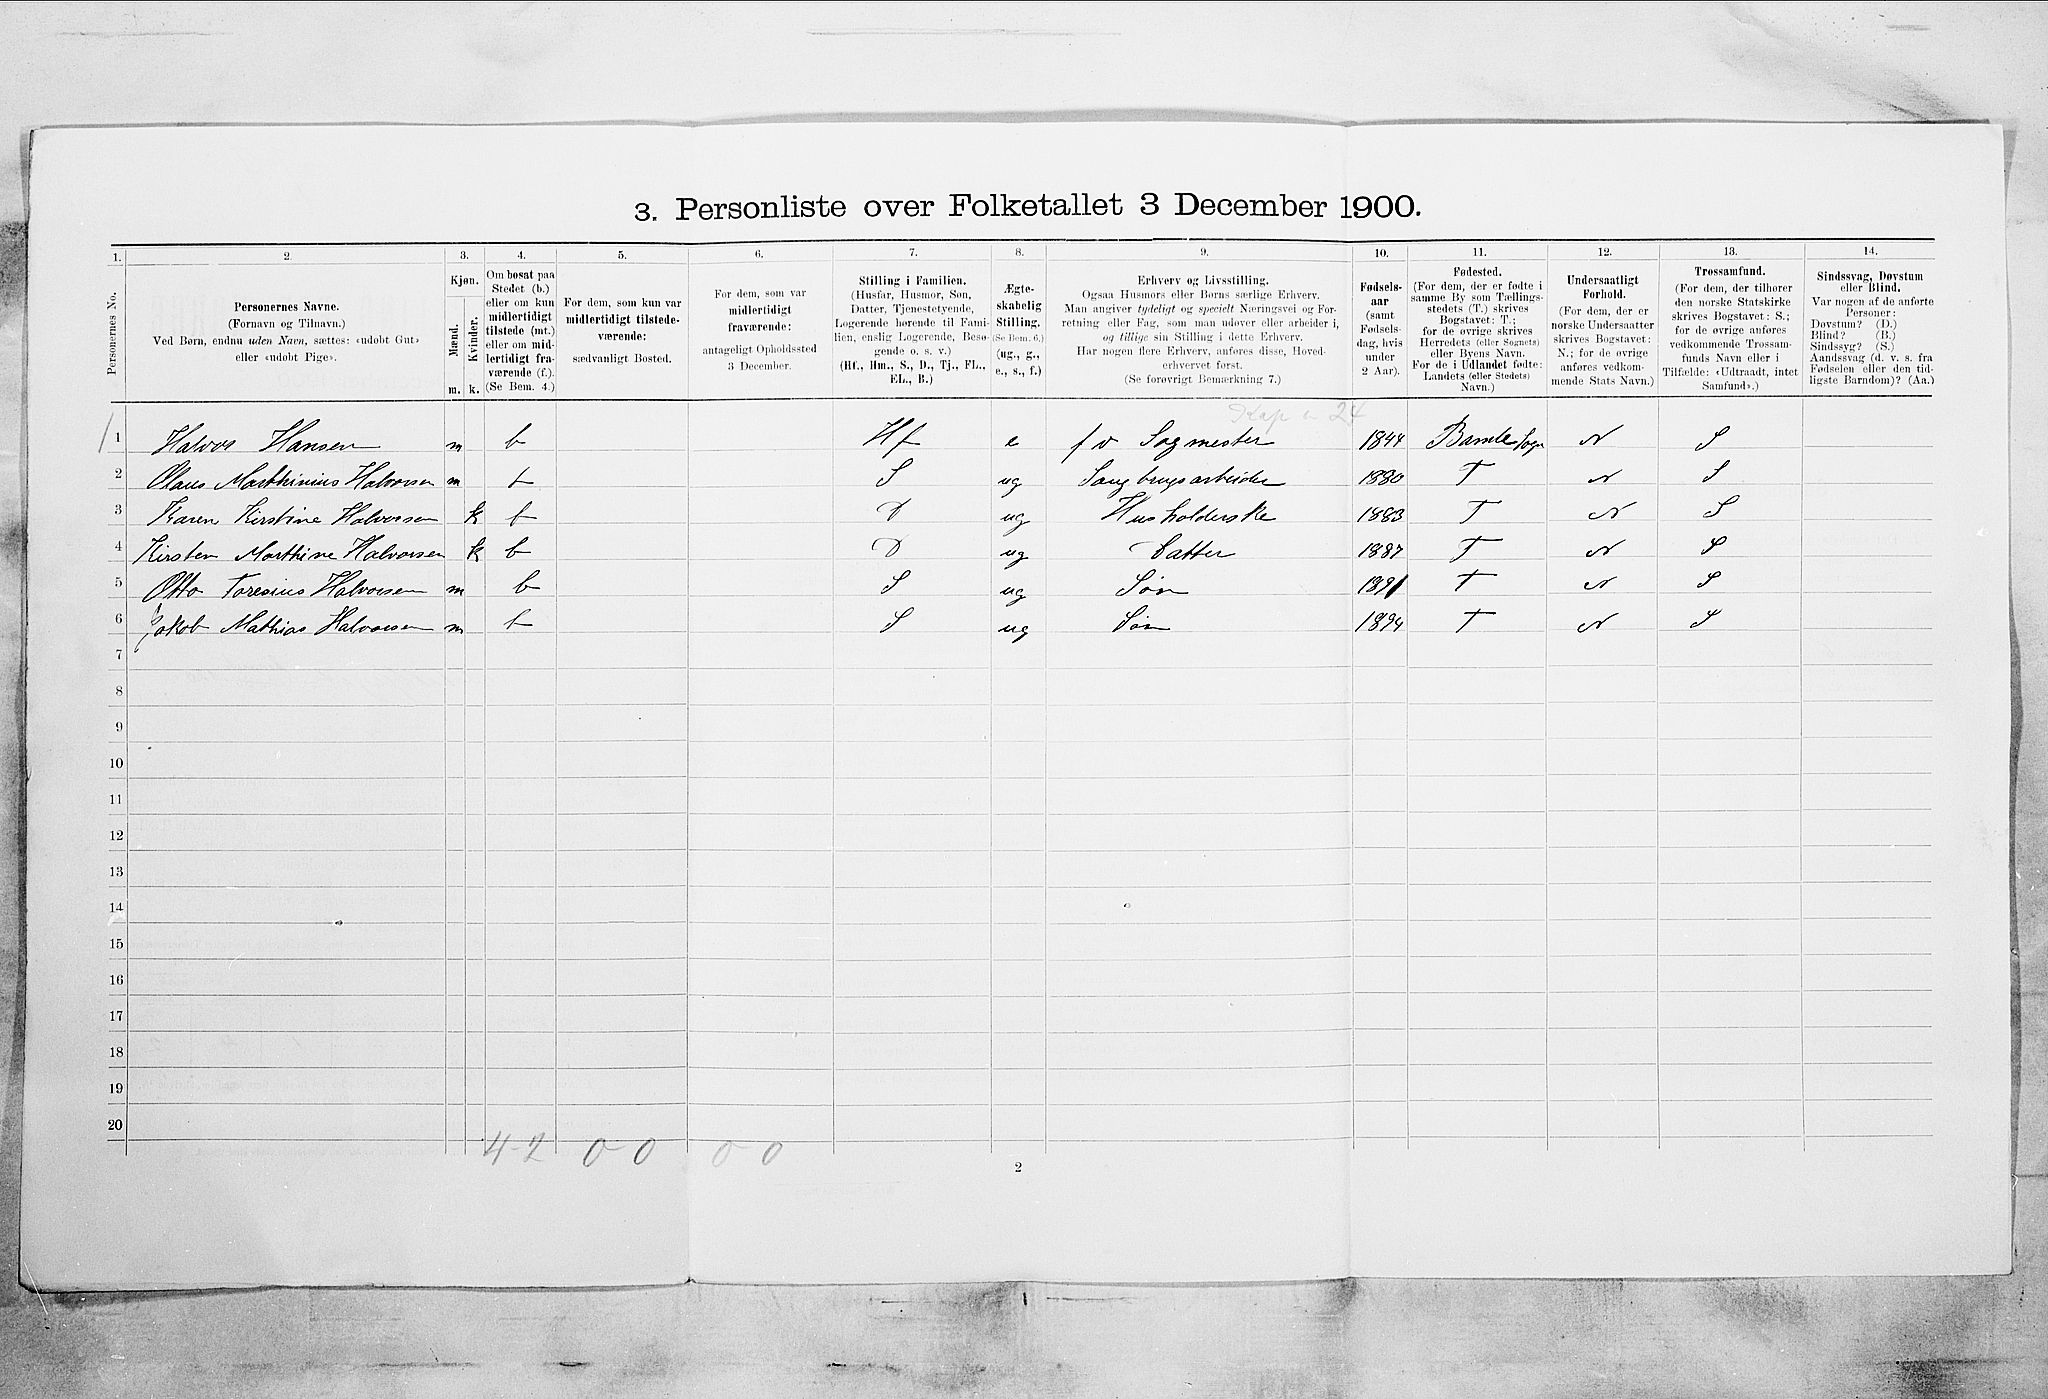 3. Personliste over Folketallet 3 December 1900.
1. 2. 3. 4. 5. 6. 7. 8. 9. 10. 11. 12. 13. 14.
Personernes No.
Personernes Navne.
(Fornavn og Tilnavn.)
Ved Børn, endnu uden Navn, sættes: «udøbt Gut»
eller «udøbt Pige».
Kjøn.
Mænd.
Kvinder.
m. k.
Om bosat paa
Stedet (b.)
eller om kun
midlertidigt
tilstede (mt.)
eller om mid-
lertidigt fra-
værende (f.)
(Se Bem. 4.)
For dem, som kun var
midlertidigt tilstede-
værende:
sædvanligt Bosted.
For dem, som var
midlertidigt
fraværende:
antageligt Opholdssted
3 December.
Stilling i Familien.
(Husfar, Husmor, Søn,
Datter, Tjenestetyende,
Logerende hørende til Fami-
lien, enslig Logerende, Besø-
gende o. s. v.)
(Hf., Hm., S., D., Tj., FL.,
EL., B.)
Ægte-
skabelig
Stilling.
(Se Bem. 6.)
(ug., g.,
e., s., f.)
Erhverv og Livsstilling.
Ogsaa Husmors eller Børns særlige Erhverv.
Man angiver tydeligt og specielt Næringsvei og For-
retning eller Fag, som man udøver eller arbeider i,
og tillige sin Stilling i dette Erhverv.
Har nogen flere Erhverv, anføres disse, Hoved-
erhvervet først.
(Se forøvrigt Bemærkning 7.)
Fødsels-
aar
(samt
Fødsels-
dag, hvis
under
2 Aar).
Fødested.
(For dem, der er fødte i
samme By som Tællings-
stedets (T.) skrives
Bogstavet: T.;
for de øvrige skrives
Herredets (eller Sognets)
eller Byens Navn.
For de i Udlandet fødte:
Landets (eller Stedets)
Navn.)
Undersaatligt
Forhold.
(For dem, der er
norske Undersaatter
skrives Bogstavet:
N.; for de øvrige
anføres vedkom-
mende Stats Navn.)
Trossamfund.
(For dem, der tilhører
den norske Statskirke
skrives Bogstavet: S.;
for de øvrige anføres
vedkommende Trossam-
funds Navn eller i
Tilfælde: «Udtraadt, intet
Samfund».)
Sindssvag, Døvstum
eller Blind.
Var nogen af de anførte
Personer:
Døvstum? (D.)
Blind? (B.)
Sindssyg? (S.)
Aandssvag (d. v. s. fra
Fødselen eller den tid-
ligste Barndom)? (Aa.)
24
1 Halvor Hansen m b Hf e fv Sagmester 1844 Bamle Sogn N S
2 Olaus Marthinius Halvorsen m b S ug Saugbrugsarbeider 1880 T N S
3 Karen Kirstine Halvorsen k b D ug Husholderske 1883 T N S
4 Kirsten Marthine Halvorsen k b D ug Datter 1887 T N S
5 Otto Toresius Halvorsen m b S ug Søn 1891 T N S
6 Jakob Mathias Halvorsen m b S ug Søn 1894 T N S
7
8
9
10
11
12
13
14
15
16
17
18
19
20
4-2 0 0 0 0
2